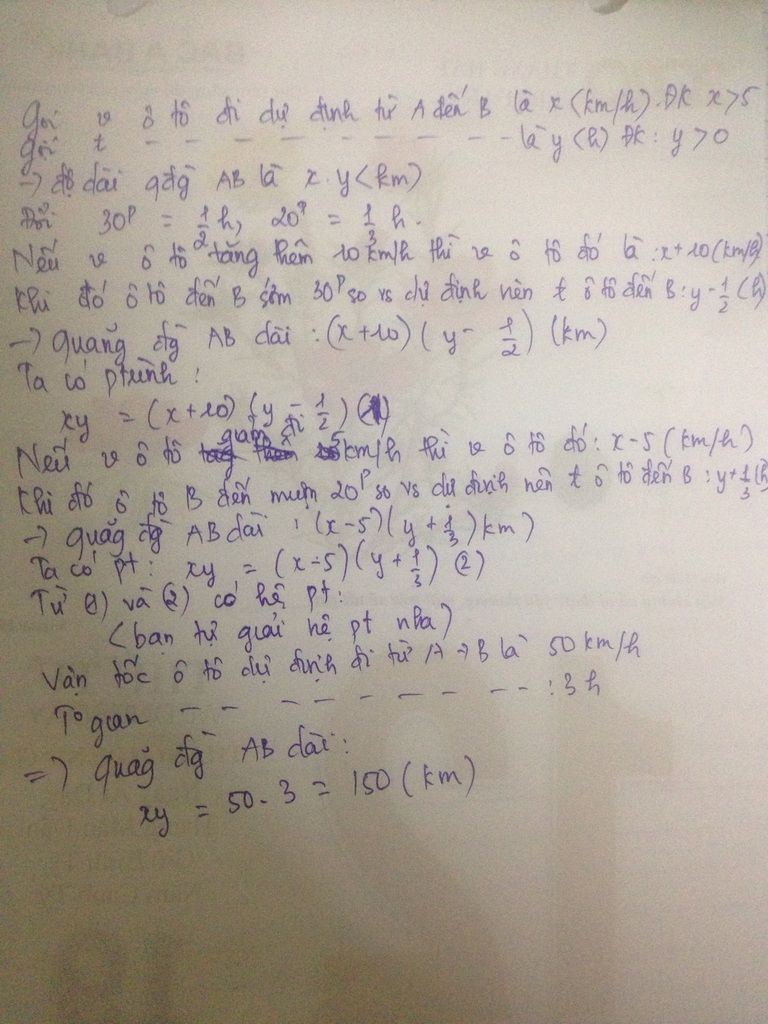 Gọi v ô tô đi dự định từ A đến B là x (km/h). ĐK x>5
Gọi t - - - - - - - - - - - là y (h) ĐK: y > 0
→ độ dài qđg AB là x.y (km)
Đổi 30p = 1/2 h, 20p = 1/3 h.
Nếu v ô tô tăng thêm 10 km/h thì v ô tô đó là: x+10 (km/h)
Khi đó ô tô đến B sớm 30p so vs dự định nên t ô tô đến B: y - 1/2 (h)
→ Quãng đg AB dài: (x+10)(y - 1/2) (km)
Ta có ptrình:
xy = (x+10)(y - 1/2) (1)
Nếu v ô tô giảm đi 5km/h thì v ô tô đó: x-5 (km/h)
Khi đó ô tô B đến muộn 20p so vs dự định nên t ô tô đến B: y+1/3 (h)
→ quãg đg AB dài: (x-5)(y + 1/3) km)
Ta có pt: xy = (x-5)(y + 1/3) (2)
Từ (1) và (2) có hệ pt:
(bạn tự giải hệ pt nha)
Vận tốc ô tô dự định đi từ A → B là 50 km/h
To gian - - - - - - - - : 3 h
=> Quãg đg AB dài:
xy = 50.3 = 150 (km)